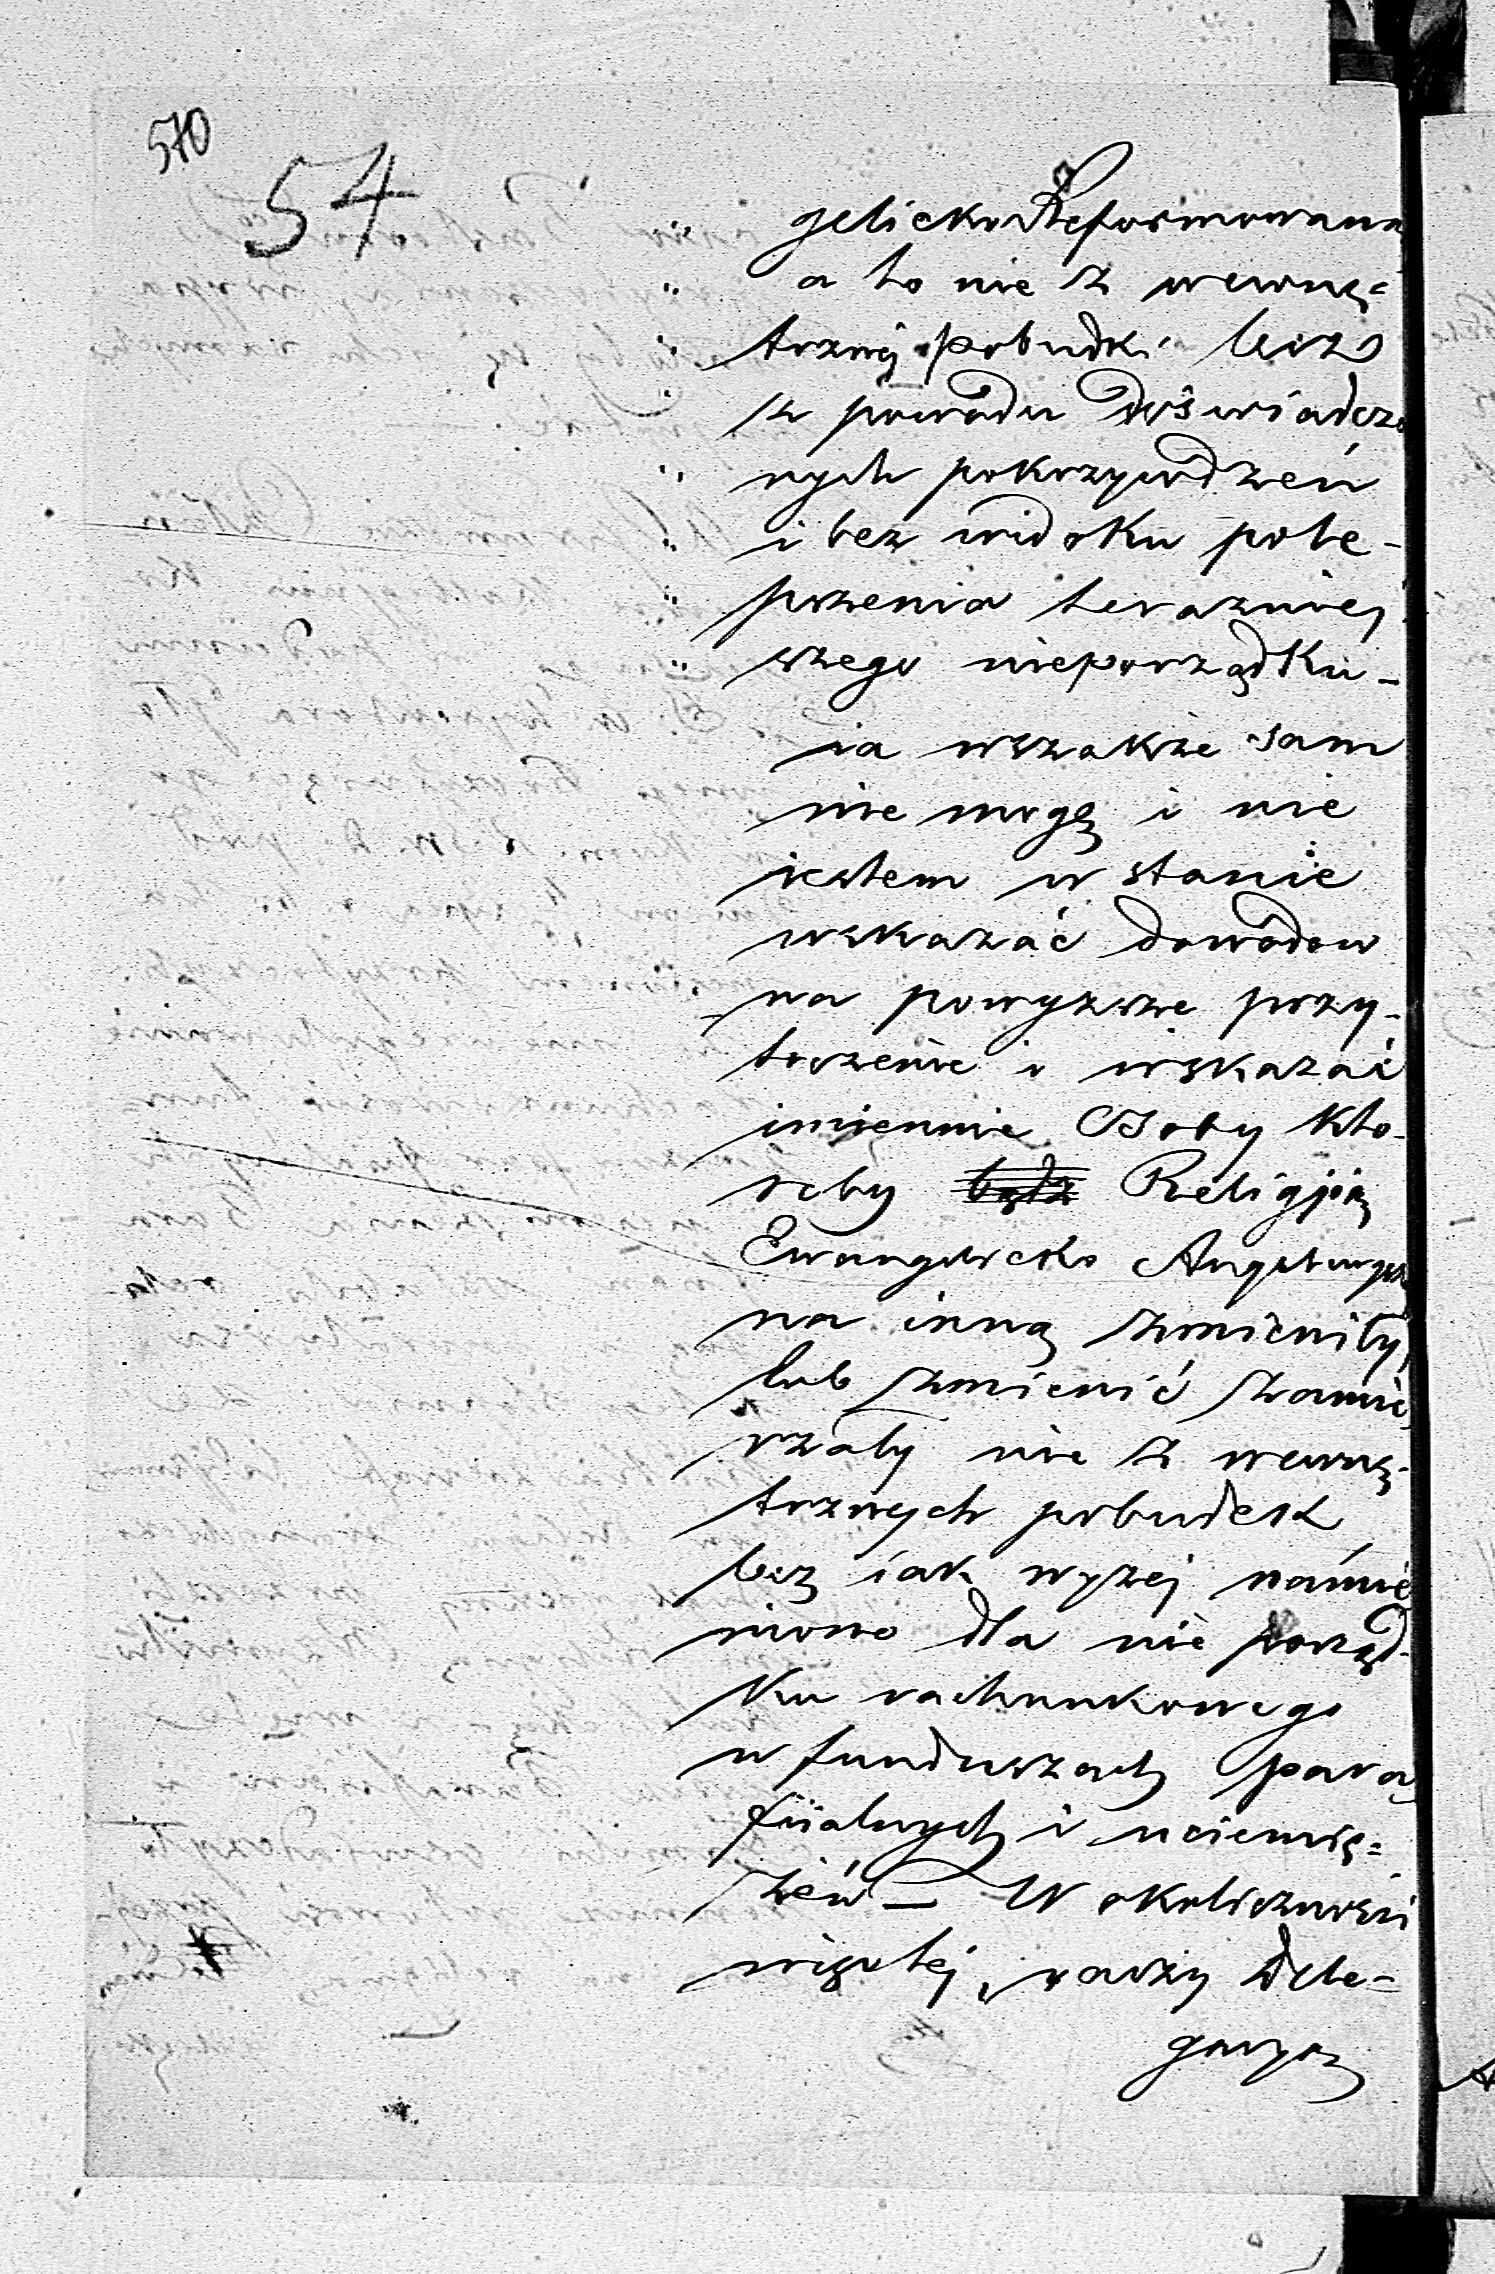 570
54
„ gelicko Reformowana
„ a to nie z wewnę=
„ trznéj pobudki lecz
„ z powodu doświadczo
„ nych pokrzywdzeń
„ i bez widoku pole-
„ pszenia teraźniej
„ szego nieporządku -
ia wszakże sam
nie mogę i nie
iestem w stanie
wskazać dowodow
na powyższe przy-
toczenie i wskazać
imiennie Osoby kto-
reby Religiją
Ewangelicko Augsburgsk
na inną zmieniły
lub zmienić zamie
rzały nie z wewnę-
trznych pobudek
lecz iak wyżej namie
niono dla nie porząd-
ku rachunkowego
w funduszach para
fiialnych i uciemię=
żéń — W okoliczności
więc téj, raczy Dele=
gacya